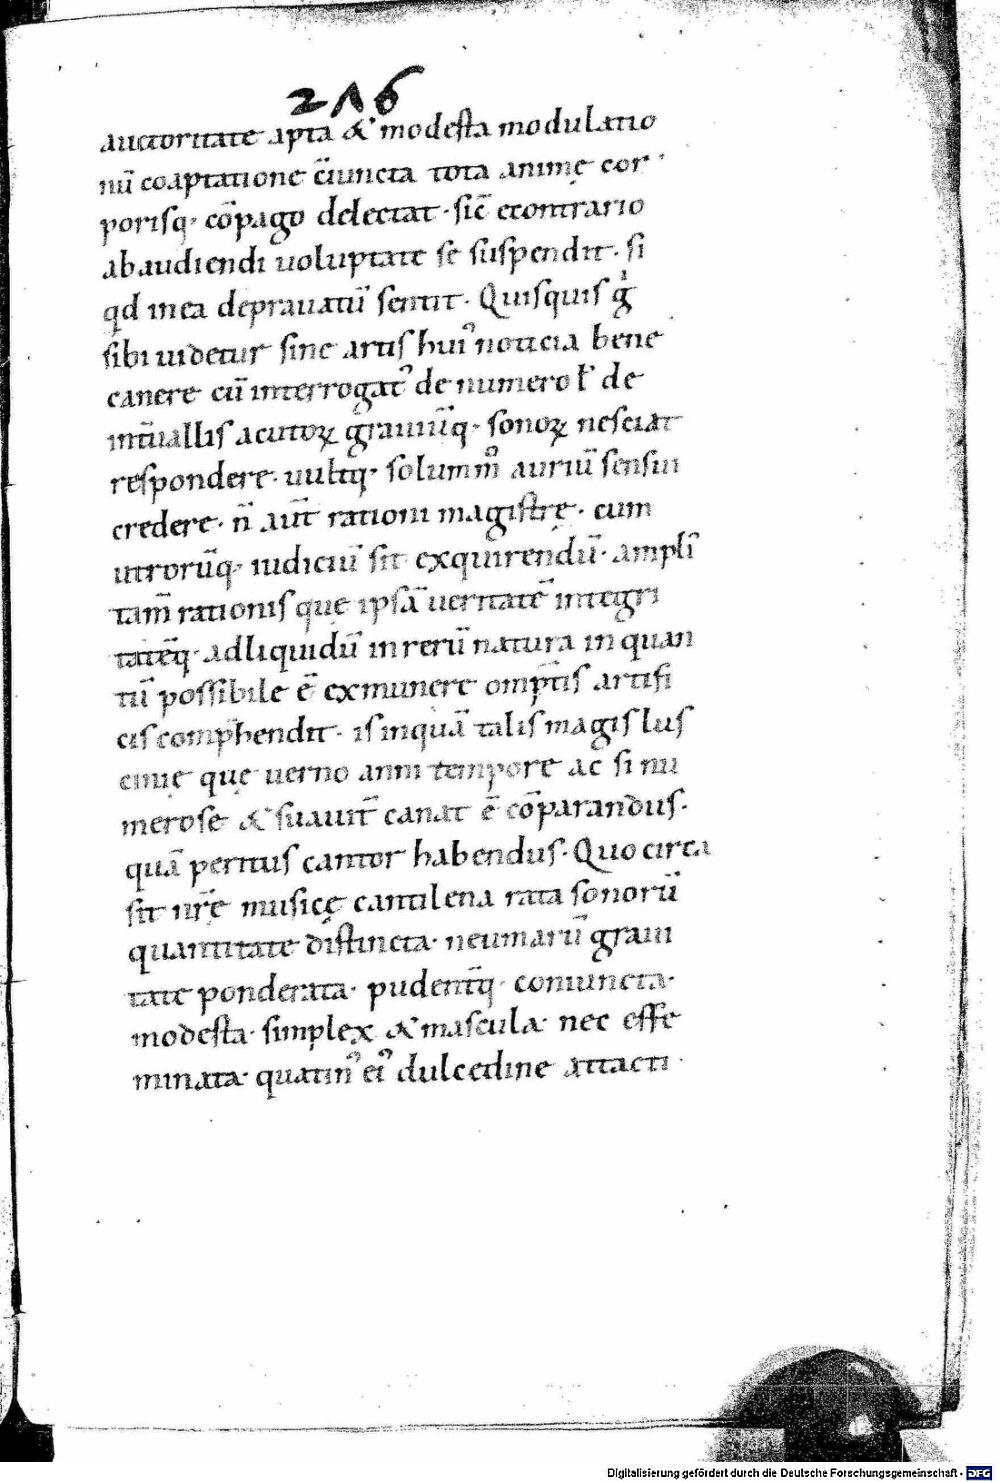 216
auctoritate apta & modesta modulatio
nū coaptatione c̄iuncta tota animę cor
porisq; cōpago delectat · sic̄ econtrario
ab audiendi uoluptate se suspendit · si
qd in ea deprauatū sentit · Quisquis g̊
sibi uidetur sine artis hui᾽ noticia bene
canere cū interrogat᾽ de numero ł de
int̄uallis acutoꝝ grauiūq; sonoꝝ nesciat
respondere · uultq; solumm᾽ auriū sensui
credere · n̄ aut̄ rationi magistrę · cum
utrorūq; iudiciū sit exquirendū · ampli᾽
tam̄ rationis que ipsā ueritatē integri
tatēq; ad liquidū in rerū natura in quan
tū possibile ē ex munere omp̄tis artifi
cis comp̄hendit · is inquā talis magis lus
cinię quę uerno anni tempore ac si nu
merose & suauit̄ canat ē cōparandus ·
quā peritus cantor habendus · Quo circa
sit nr̄ę musicę cantilena rata sonorū
quantitate distincta · neumarū graui
tate ponderata · pudent̄q; coniuncta ·
modesta · simplex & mascula · nec effe
minata · quatin᾽ ei᾽ dulcedine attacti
Digitalisierung gefördert durch die Deutsche Forschungsgemeinschaft - DFG